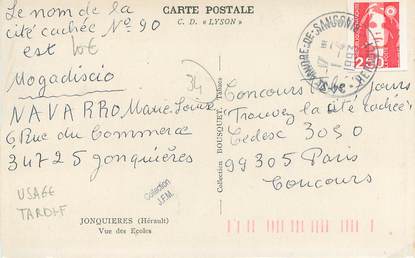 CARTE POSTALE
C. D. « LYSON »
Le nom de la
cité cachée N° 90
est
Mogadiscio
34
NAVARRO Marie Louise
6 Rue du Commerce
34725 Jonquières
USAGE
TARDIF
Collection
J.F.M.
JONQUIERES (Hérault)
Vue des Ecoles
Collection BOUSQUET, Tabacs
ST ANDRE-DE-SANGONIS
34
2,50
Concours jours
"Trouvez la cité cachée"
Cedesc 3030
99305 Paris
Concours